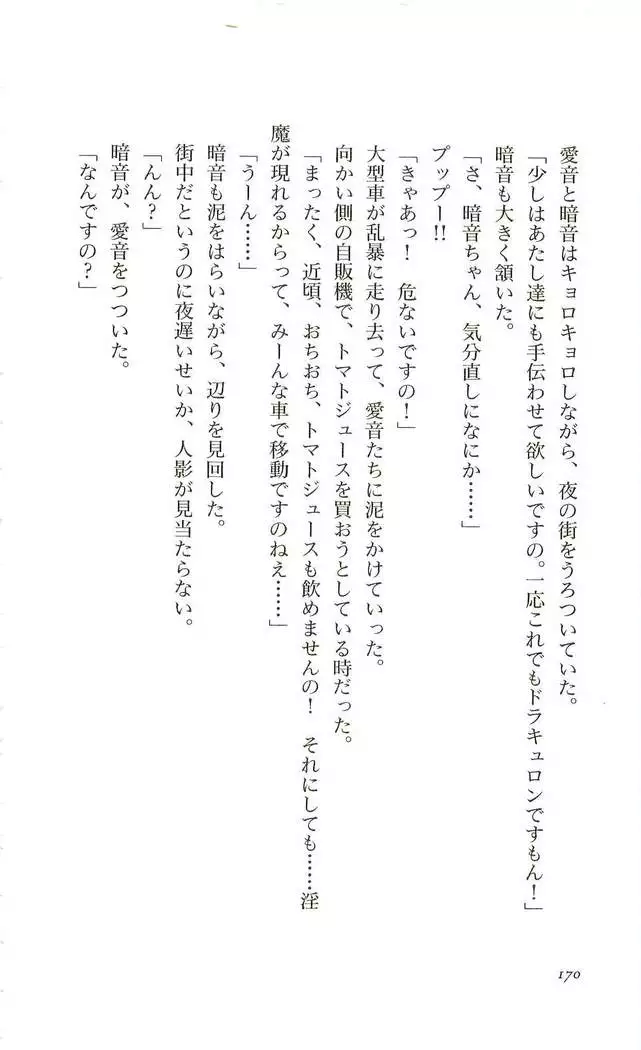 愛音と暗音はキョロキョロしながら、夜の街をうろついていた。
「少しはあたし達にも手伝わせて欲しいですの。一応これでもドラキュロンですもん！」
暗音も大きく頷いた。
「さ、暗音ちゃん、気分直しになにか……」
プップー!!
「きゃあっ！　危ないですの！」
大型車が乱暴に走り去って、愛音たちに泥をかけていった。
向かい側の自販機で、トマトジュースを買おうとしている時だった。
「まったく、近頃、おちおち、トマトジュースも飲めませんの！　それにしても……淫
魔が現れるからって、みーんな車で移動ですのねえ……」
「うーん……」
暗音も泥をはらいながら、辺りを見回した。
街中だというのに夜遅いせいか、人影が見当たらない。
「んん？」
暗音が、愛音をつついた。
「なんですの？」
170